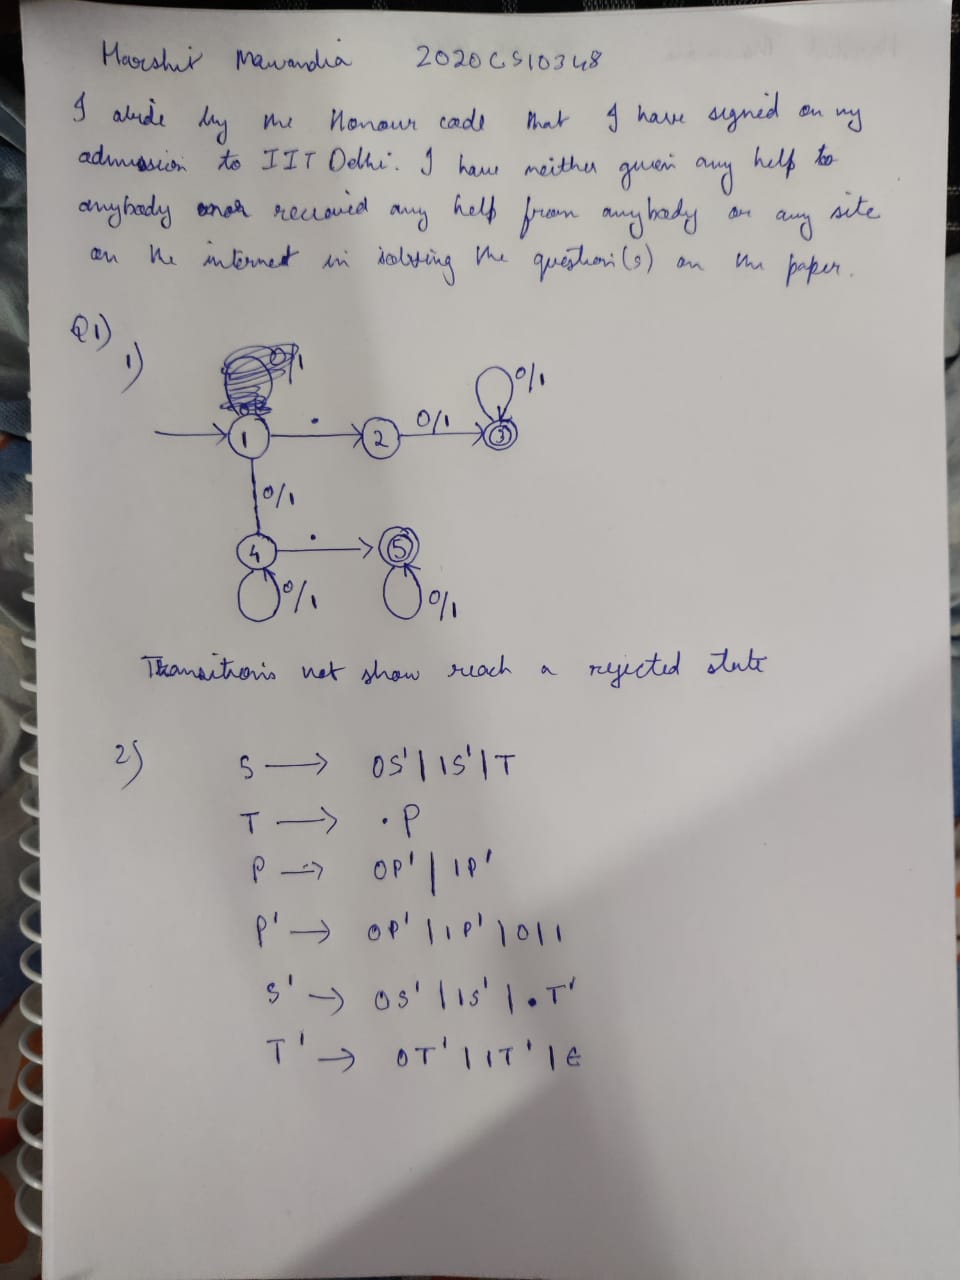 Harshit Mawandia 2020CS10348
I abide by the Honour code that I have signed on my
admission to IIT Delhi. I have neither given any help to
anybody nor received any help from anybody or any site
on the internet in solving the question(s) on the paper.
Q1)
1)
0/1
0/1
1 . 2 0/1 3
0/1
4 . 5
0/1 0/1
Transitions not show reach a rejected state
2) S → 0S' | 1S' | T
T → .P
P → 0P' | 1P'
P' → 0P' | 1P' | 0 | 1
S' → 0S' | 1S' | .T'
T' → 0T' | 1T' | ϵ